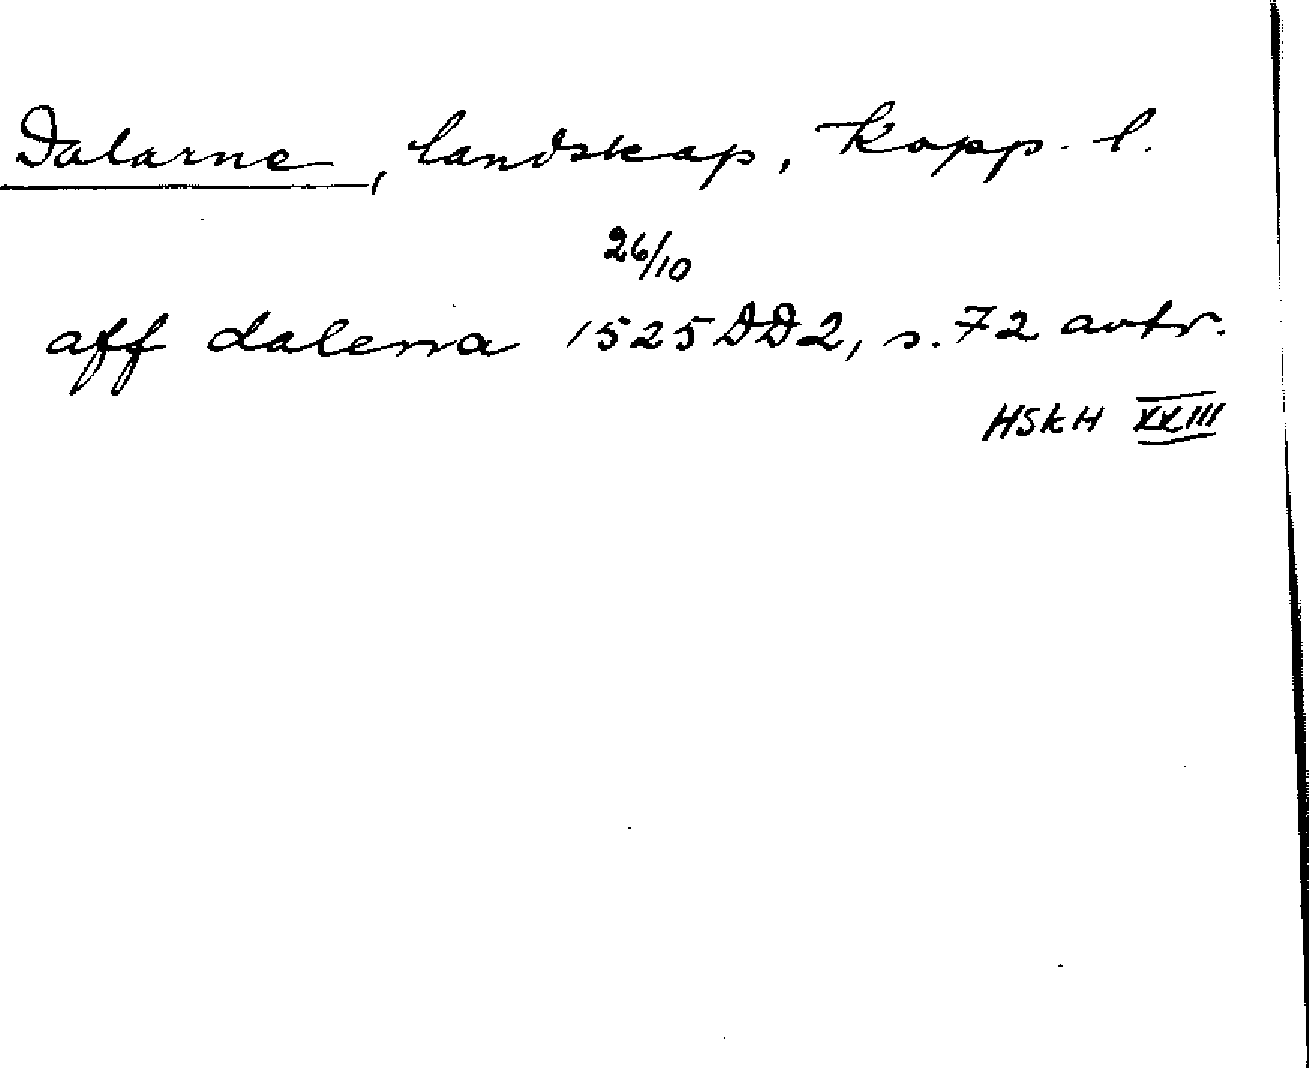 Dalarne, landskap, Kopp. l.
26/10
aff dalerna 1525 DD2, s. 72 avtr.
HSkH XXIII